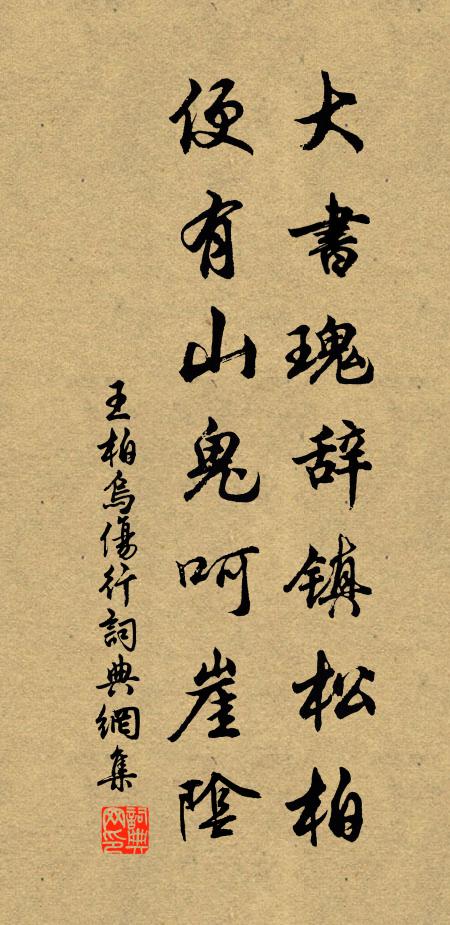 大書瑰辞镇松柏
便有山鬼呵崖陰
王柏烏傷行詞典網集
詞典網印